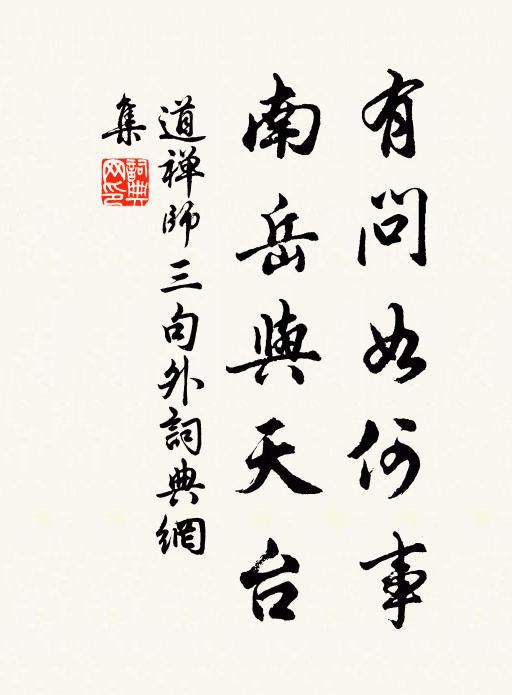 有問如何事
南岳與天台
道禅師三句外詞典網
集
詞典網印